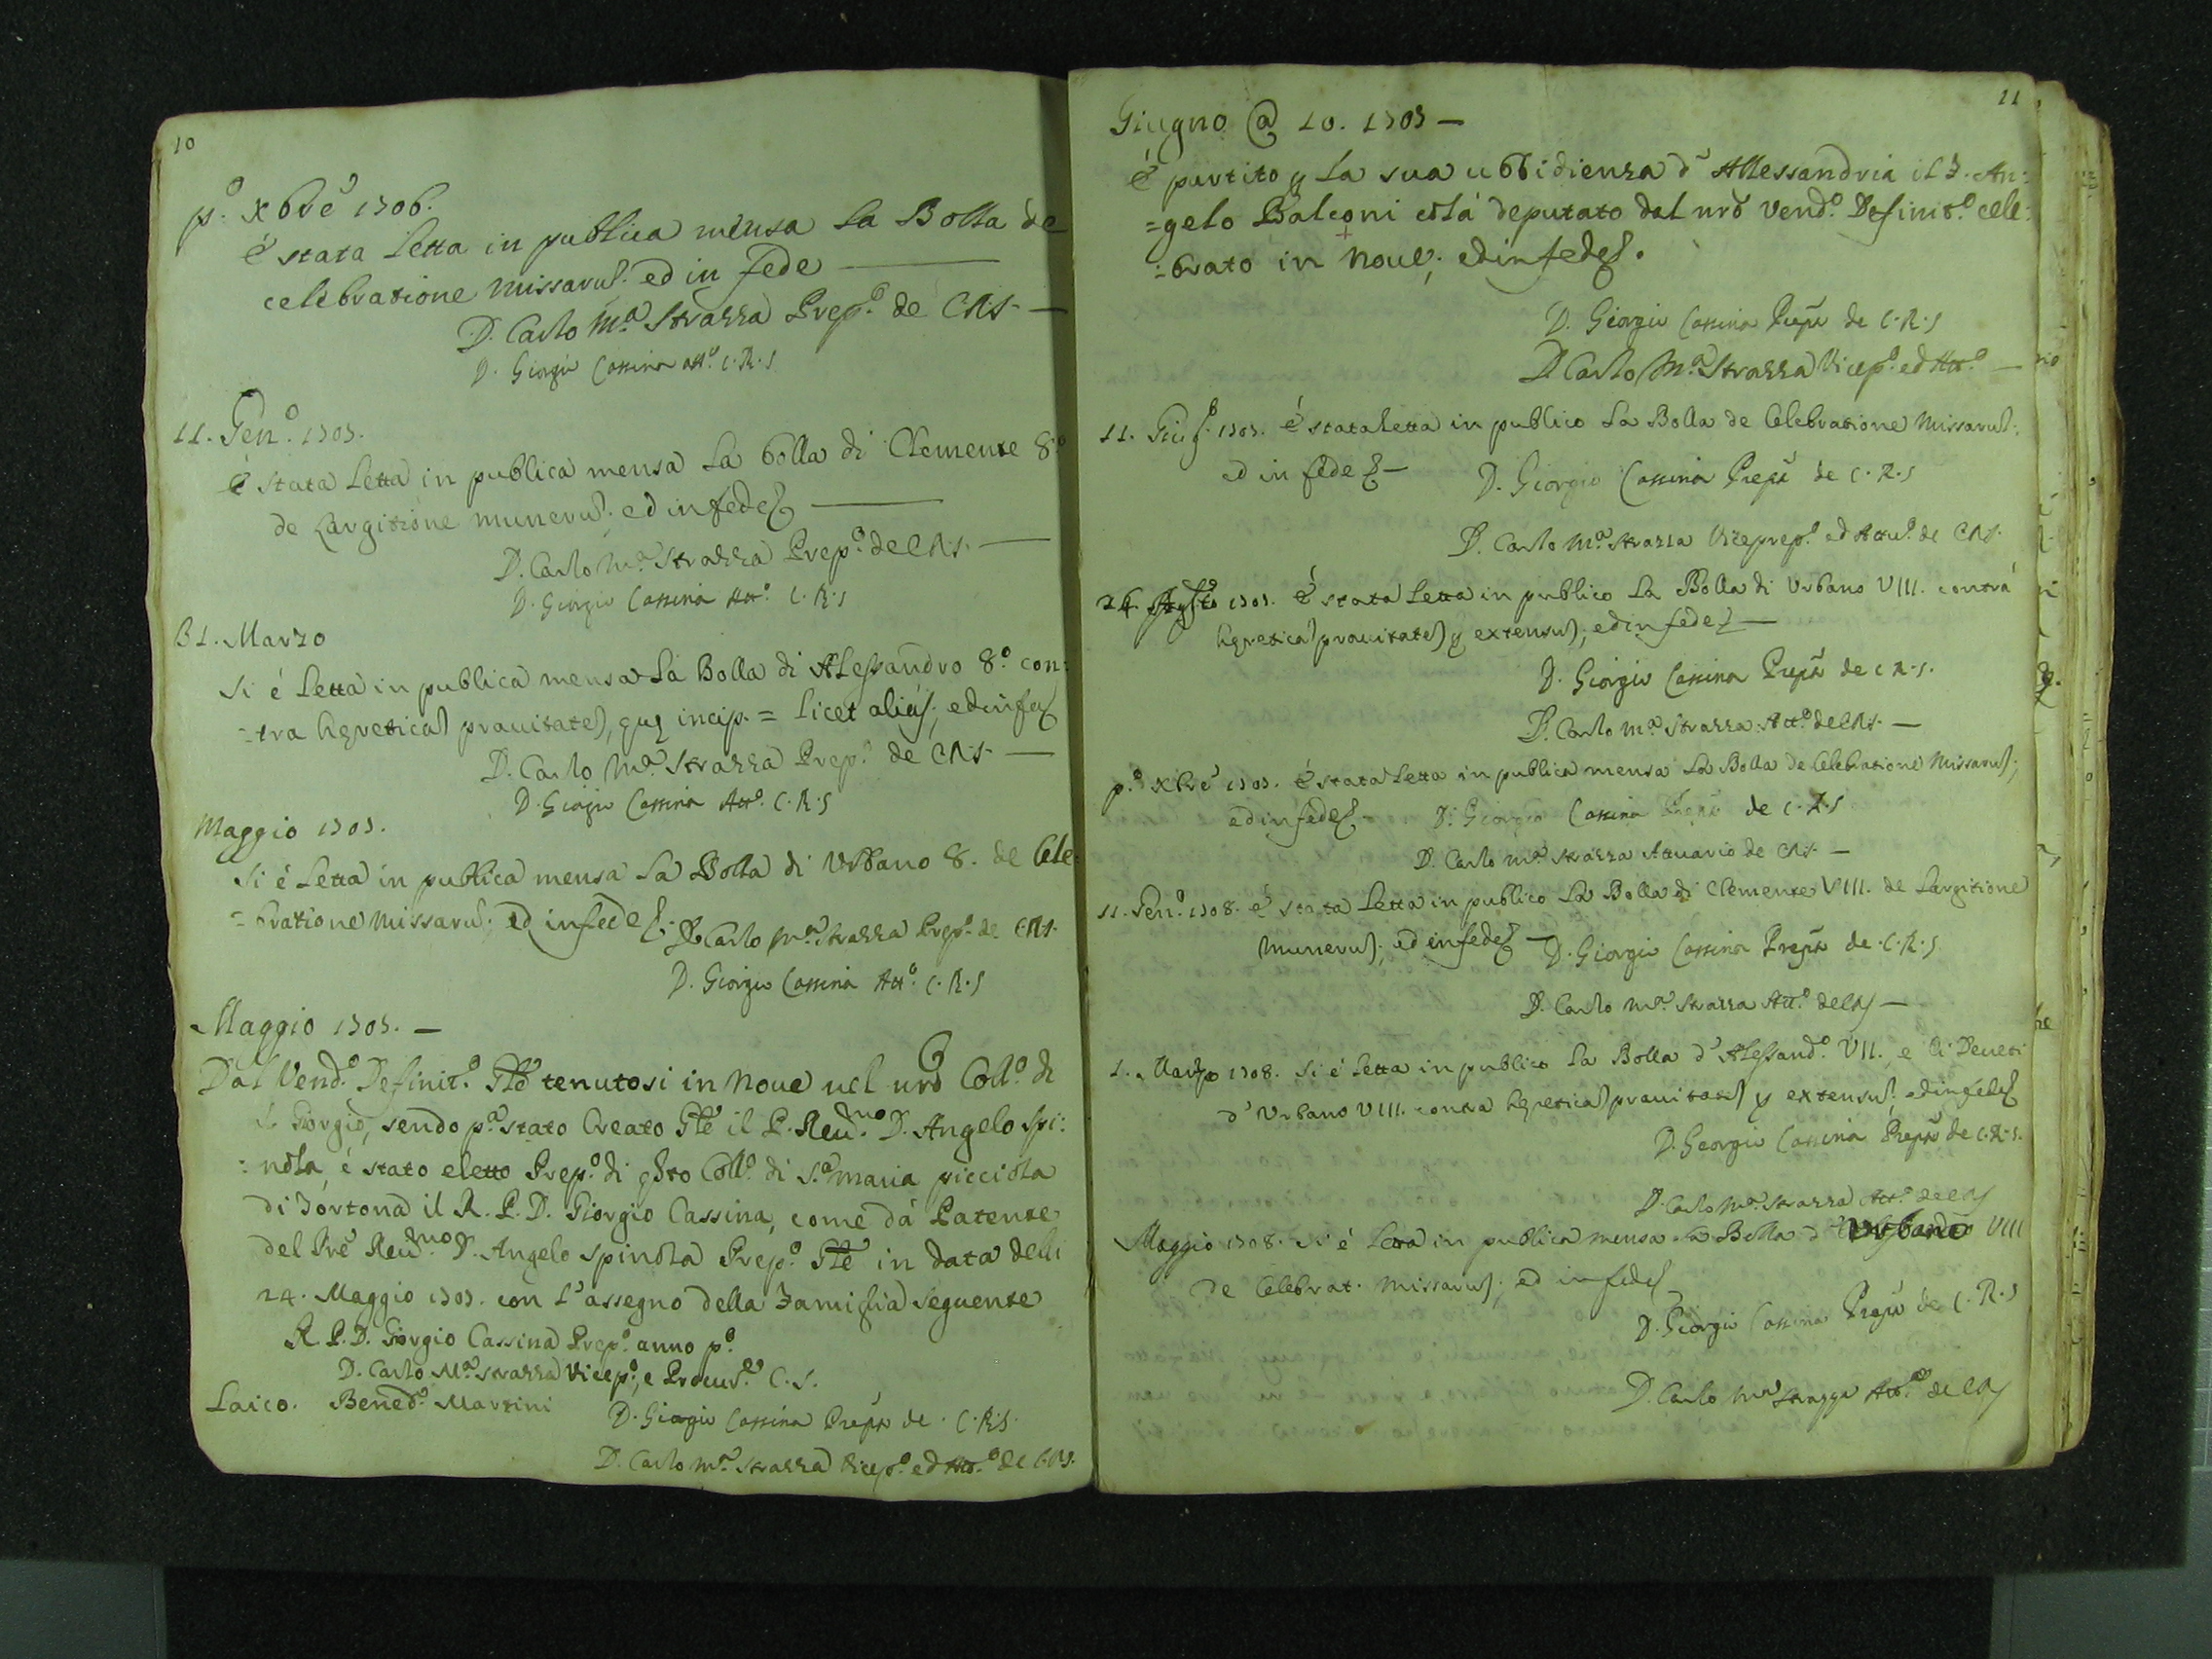 10
p.º Xbrê 1706.
È stata Letta in publica mensa La Bolla de
celebratione missaruʃ. ed in fede
D. Carlo M.ª Strazza Prep.º de CRS.
D. Giorgio Cassina Att.º C.R.S
11. Gen.º 1707.
È stata Letta in publica mensa La bolla di Clemente 8º
de Largitione muneruʃ. ed in fede
D. Carlo M.ª Strazza Prep.º de CRS.
D. Giorgio Cassina Att.º C.R.S
31. Marzo
Si é Letta in publica mensa La Bolla di Alessandro 8.º con:
=tra hęreticaʃ prauitateʃ, quę incip. = Licet aliás; ed in fe
D. Carlo M.ª Strazza Prep.º de CRS
D. Giorgio Cassina Att.º C.R.S
Maggio 1707.
Si é Letta in publica mensa La Bolla di Urbano 8. de Cele:
=bratione Missaruʃ; ed in fede D. Carlo M.ª Strazza Prep.º de CRS.
D. Giorgio Cassina Att.º C.R.S
Maggio 1707. —
Dal Vend.º Definit.º Gle tenutosi in Noue nel nro Coll.º di
S. Giorgio, sendo p.ª stato Creato Gle il P. Reu.mo D. Angelo Spi:
:nola, é stato eletto Prep.º di qsto Coll.º di S.ª Maria picciola
di Tortona il R. P. D. Giorgio Cassina, come dá Patente
del Prê Reu.mo D. Angelo Spinola Prep.º Gle in data delli
24. Maggio 1707. con L'assegno della Famiglia seguente
R. P. D. Giorgio Cassina Prep.º anno p.º
D. Carlo M.ª Strazza Vicep.º, e Procur.e C.S.
Laico. Bened.º Martini
D. Giorgio Cassina Prepto de C.R.S.
D. Carlo M.ª Strazza Vicep.º ed Att.º de CRS.
11
Giugno @ 10. 1707 —
É partito p La sua ubbidienza d'Allessandria il P. An:
=gelo Balconi colá deputato dal nro Vend.º Definit.º cele:
:brato in Noue; ed in fede.
D. Giorgio Cassina Prepto de C.R.S
D. Carlo M.ª Strazza Vicep.º ed Att.º —
11. Giug.º 1707. É stata Letta in publico La Bolla de Celebratione Missaruʃ:
ed in fede —
D. Giorgio Cassina Prepto de C.R.S
D. Carlo M.ª Strazza Viceprep.º ed Attu.º de CRS.
24. Agosto 1707. É stata Letta in publico La Bolla di Urbano VIII. contrá
hęreticaʃ prauitateʃ p extensuʃ; ed in fede —
D. Giorgio Cassina Prepto de C.R.S.
D. Carlo M.ª Strazza Att.º de CRS. —
p.º Xbrê 1707. É stata Letta in publica mensa La Bolla de Celebratione Missaruʃ;
ed in fede D. Giorgio Cassina Prepto de C.R.S
D. Carlo M.ª Strazza Attuario de CRS. —
11. Gen.º 1708. é stata Letta in publico La Bolla di Clemente VIII. de Largitione
Muneruʃ; ed in fede — D. Giorgio Cassina Prepto de C.R.S
D. Carlo M.ª Strazza Att.º de CRS —
1. Marzo 1708. Si é Letta in publico La Bolla d'Alessand.º VII. e li Decreti
d'Urbano VIII. contra hęreticaʃ prauitateʃ p extensuʃ. ed in fede
D. Giorgio Cassina Prepto de C.R.S.
D. Carlo M.ª Strazza Att.º de CRS
Maggio 1708. Si é Letta in publica mensa La Bolla d' Urbano VIII
de Celebrat. Missaruʃ; ed in fede
D. Giorgio Cassina Prepto de C.R.S
D. Carlo M.ª Strazza Att.º de CRS